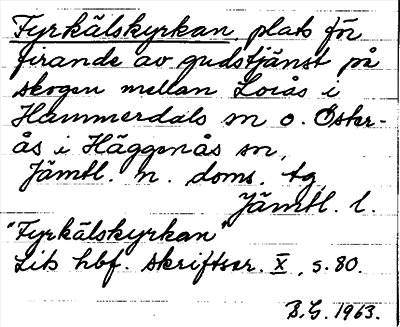 Fyrkälskyrkan plats för
firande av gudstjänst på
skogen mellan Loiås i
Hammerdals sn o. Öster-
ås i Häggenås sn,
Jämtl. n. doms. tg,
Jämtl. l.
"Fyrkälskyrkan"
Lits hbf. skriftser. X, s. 80.
B.G. 1963.